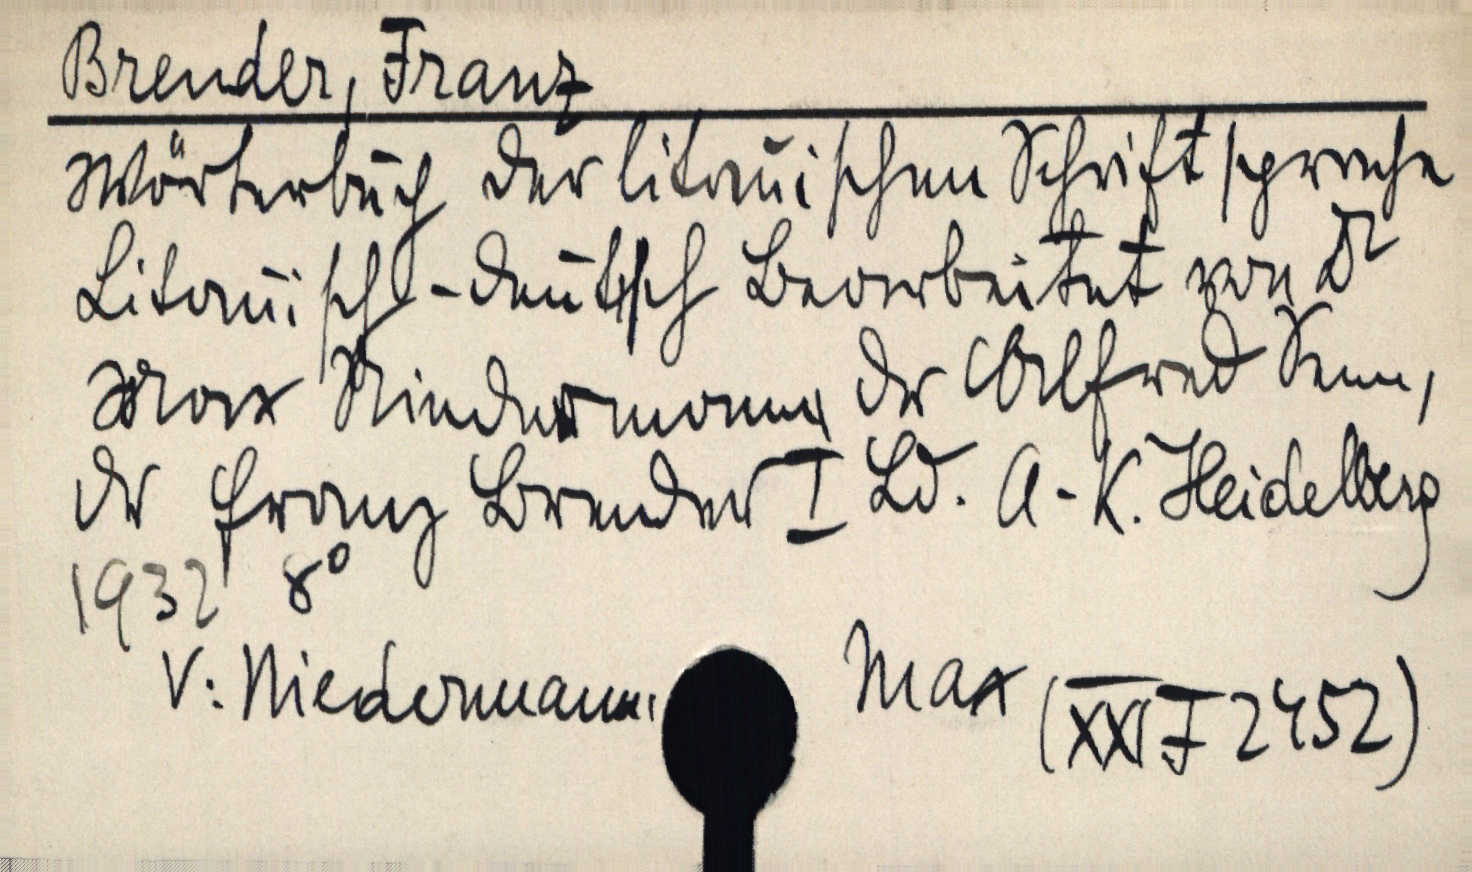 Brender, Franz
Wörterbuch der litauischen Schriftsprache
Litauisch-deutsch Bearbeitet von Dr
Max Niedermann, Dr Alfred Senn,
Dr Franz Brender I Bd. A-K. Heidelberg
1932 8°
V: Niedermann, Max (XXI F 2452)